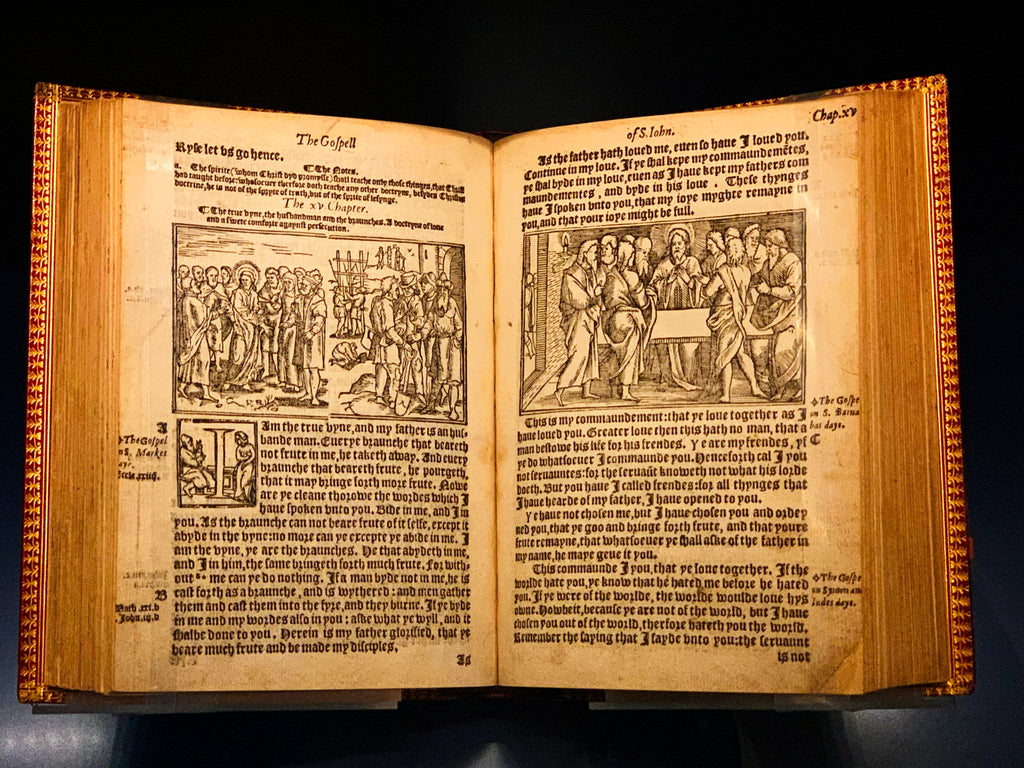 The Gospell
Ryse let vs go hence.
¶ The Notes.
a. The spirite (whom Christ dyd promyse) shall teache only those thinges, that Christ
had taught before: whosoeuer therfore doth teache any other doctryne, besydes Christes
doctrine, he is not of the spyryte of truth, but of the spirite of lesynge.
The xv Chapter.
¶ The true vyne, the husbandman and the braunches. A doctryne of loue
and a swete comforte agaynst persecution.
A
✤The Gospel
on S. Markes
daye.
Eccle.xxiiij.
I Am the true vyne, and my father is an hus-
bande man. Euerye braunche that beareth
not frute in me, he taketh away. And euery
braunche that beareth frute, he pourgeth,
that it may bringe forth more frute. Nowe
are ye cleane thorowe the wordes which I
haue spoken vnto you. Bide in me, and I in
you. As the braunche can not beare frute of it selfe, except it
abyde in the vyne: no more can ye excepte ye abide in me. I
am the vyne, ye are the braunches. He that abydeth in me,
and I in him, the same bringeth forth much frute. For with-
out me can ye do nothing. If a man byde not in me, he is
B
cast forth as a braunche, and is wythered: and men gather
Math.xxi.v
them and cast them into the fyre, and they burne. If ye byde
John.iij.v
in me and my wordes also in you: aske what ye wyll, and it
shalbe done to you. Herein is my father glorified, that ye
beare much frute and be made my disciples.
As
of S. Iohn.
Chap.xv
As the father hath loued me, euen so haue I loued you.
Continue in my loue. If ye shal kepe my commaundemētes,
ye shal byde in my loue, euen as I haue kept my fathers com
maundementes, and byde in his loue. These thynges
haue I spoken vnto you, that my ioye myghte remayne in
you, and that youre ioye might be full.
This is my commaundement: that ye loue together as I
haue loued you. Greater loue then this hath no man, that a
man bestowe his life for his frendes. Ye are my frendes, yf
ye do whatsoeuer I commaunde you. Henceforth cal I you
not seruauntes: for the seruaūt knoweth not what his lorde
doeth. But you haue I called frendes: for all thynges that
I haue hearde of my father, I haue opened to you.
✤The Gospe
on S. Barna
bas daye.
C
Ye haue not chosen me, but I haue chosen you and ordey
ned you, that ye goo and bringe forth frute, and that youre
frute remayne, that whatsoeuer ye shall aske of the father in
my name, he maye geue it you.
This commaunde I you, that ye loue together. If the
worlde hate you, ye know that he hated me before he hated
you. If ye were of the worlde, the worlde woulde loue hys
owne. Howbeit, because ye are not of the world, but I haue
chosen you out of the world, therfore hateth you the world.
Remember the saying that I sayde vnto you: the seruaunt
✤The Gospe
on Symon and
Iudes daye.
is not